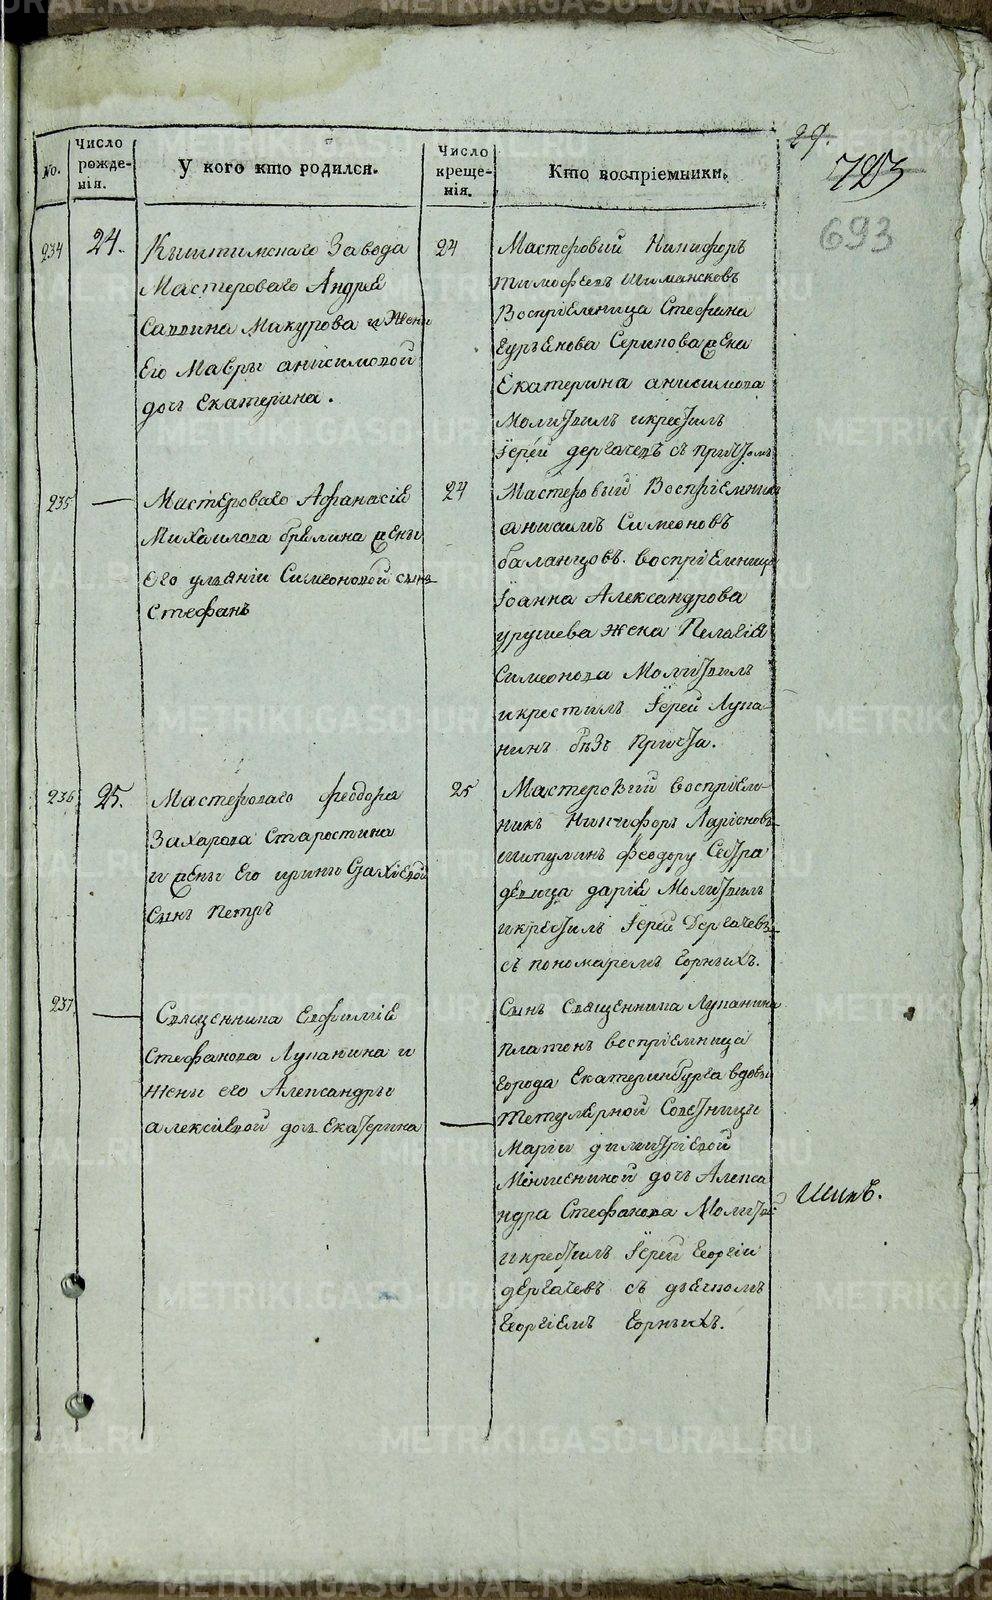 29.
723
693
No.
Число рожде-нія.
У кого кто родился.
Число креще-нія.
Кто воспріемники.
234
24.
Кыштимскаго Завода
Мастероваго Андрея
Саввина Макурова и Жены
Его Мавры анисимовой
дочь Екатерина.
24
Мастеровий Никифоръ
тимофеевъ
Воспріемница Стефана
Гурьенова жена
Екатерина анисимова
Молитвилъ икрестилъ
Іерей дергачевъ съ причтомъ
235
Мастероваго Афанасіе
Михаилова брелина жены
его уліяніи Симеоновой сынъ
Стефанъ
24
Мастеровый Воспріемникъ
анисимъ Симеоновъ
баланцовъ. воспріемница
Іоанна Александрова
урушева жена Пелагія
Симеонова Молитвилъ
икрестилъ Іерей Лупа-
нинъ безъ Причта.
236
25.
Мастероваго феодора
Захарова Старостина
и жены Его ирины
Сынъ Петръ
25
Мастеровий воспріем-
никъ Никифоръ Ларионовъ
шипулинъ феодору Сестра
девица даріе Молитвилъ
икрестилъ Іерей Дергачевъ
съ пономаремъ Горныхъ.
237
Священника Евфиміе
Стефанова Лупанина и
жены его Александры
алексіевой дочь Екатерина
Сынъ Священника Лупанина
Платонъ воспріемница
города Екатеринбурга вдовы
Тетулярной Советницы
Маріи димитріевой
дочь Алекса
ндра Стефанова Молитвил
икрестилъ Іерей Георгіи
дергачевъ съ дьячкомъ
Георгіемъ Горныхъ.